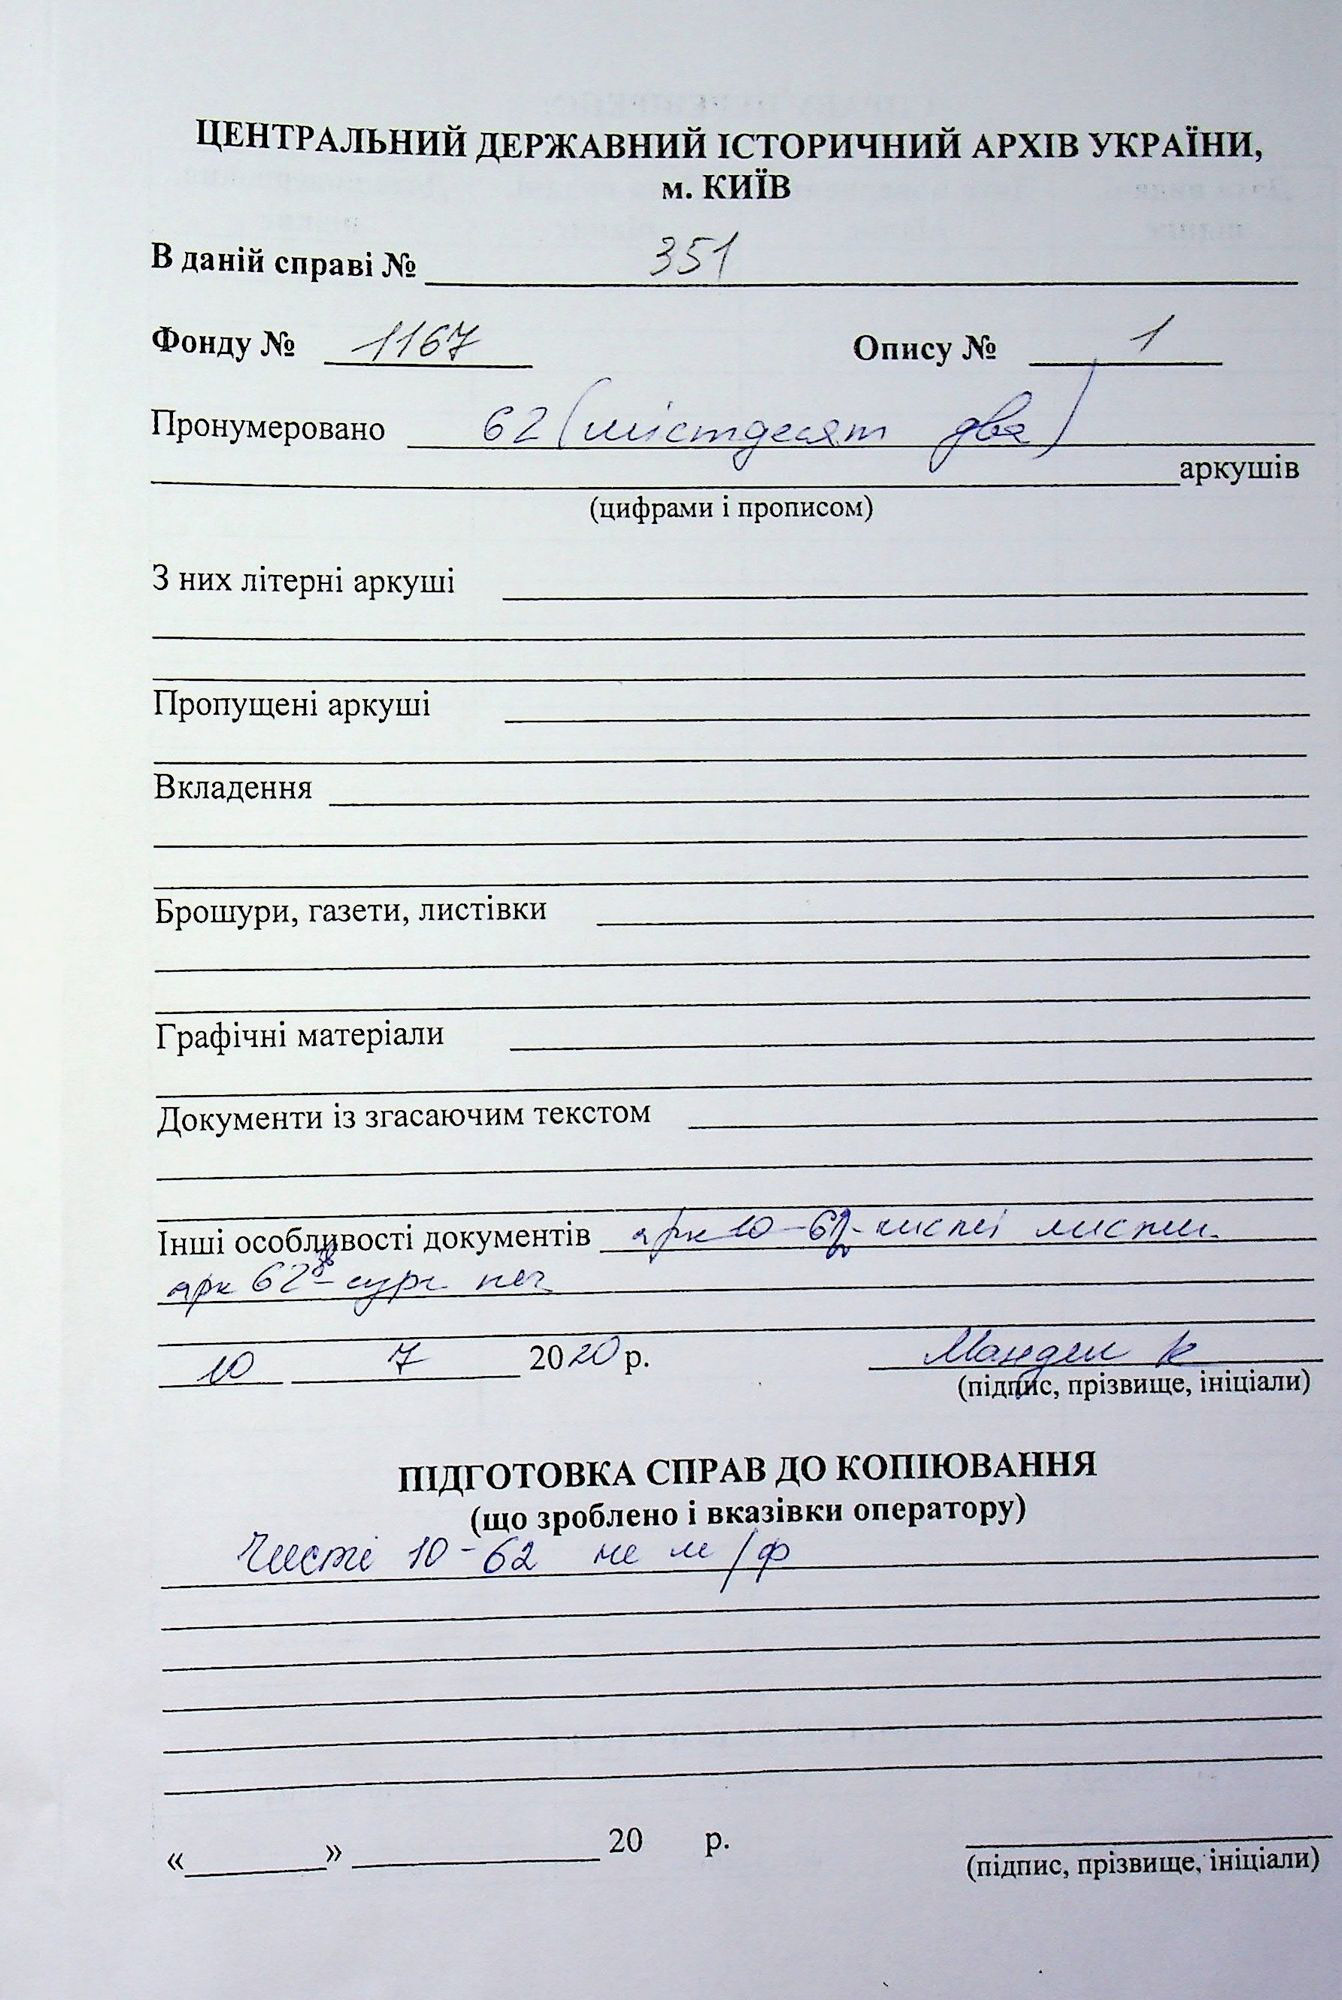 ЦЕНТРАЛЬНИЙ ДЕРЖАВНИЙ ІСТОРИЧНИЙ АРХІВ УКРАЇНИ,
м. КИЇВ
В даній справі № 351
Фонду № 1167 Опису № 1
Пронумеровано 62 (шістдесят два)
аркушів
(цифрами і прописом)
З них літерні аркуші
Пропущені аркуші
Вкладення
Брошури, газети, листівки
Графічні матеріали
Документи із згасаючим текстом
Інші особливості документів арк 10-62 - чисті листи.
арк 62 зв - сург. печ
10 7 2020 р.
(підпис, прізвище, ініціали)
ПІДГОТОВКА СПРАВ ДО КОПІЮВАННЯ
(що зроблено і вказівки оператору)
Чисті 10-62 не м/ф
« » 20 р.
(підпис, прізвище, ініціали)